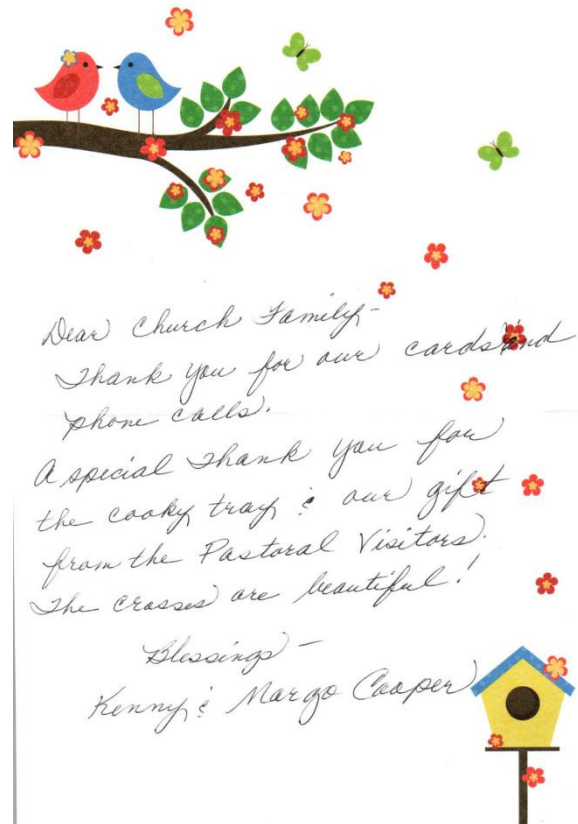 Dear Church Family-
Thank you for our cards and
phone calls.
A special Thank you for
the cooky tray & our gift
from the Pastoral Visitors.
The crosses are beautiful!
Blessings -
Kenny & Margo Cooper